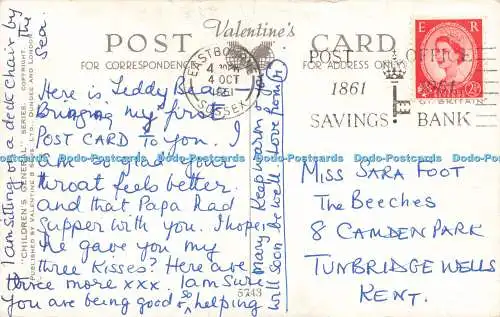 Valentine's
POST CARD
FOR CORRESPONDENCE
FOR ADDRESS ONLY
EASTBOURNE
4 OCT
1961
SUSSEX
POST OFFICE
1861
SAVINGS BANK
E R
2½D
"CHILDREN'S GENERAL" SERIES. COPYRIGHT
PUBLISHED BY VALENTINE & SONS, LTD., DUNDEE AND LONDON
Here is Teddy Bear
Bringing my first
POST CARD to you. I
am so glad your
throat feels better.
and that Papa had
supper with you. I hope
he gave you my
three kisses? Here are
three more xxx. I am sure
You are being good & so helping
Mary. Keep warm & you
will soon be well Love from M
I am sitting on a deck chair by the
Sea.
5243
MISS SARA FOOT
The Beeches
8 CAMDEN PARK
TUNBRIDGE WELLS
KENT.
Dodo-Postcards Dodo-Postcards Dodo-Postcards Dodo-Postcards